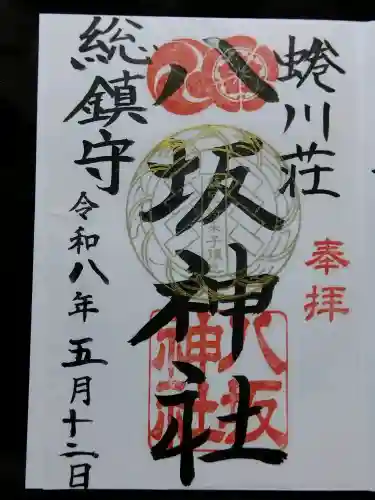 奉拝
蜷川荘
八坂神社
八坂
神社
総鎮守
令和八年五月十二日